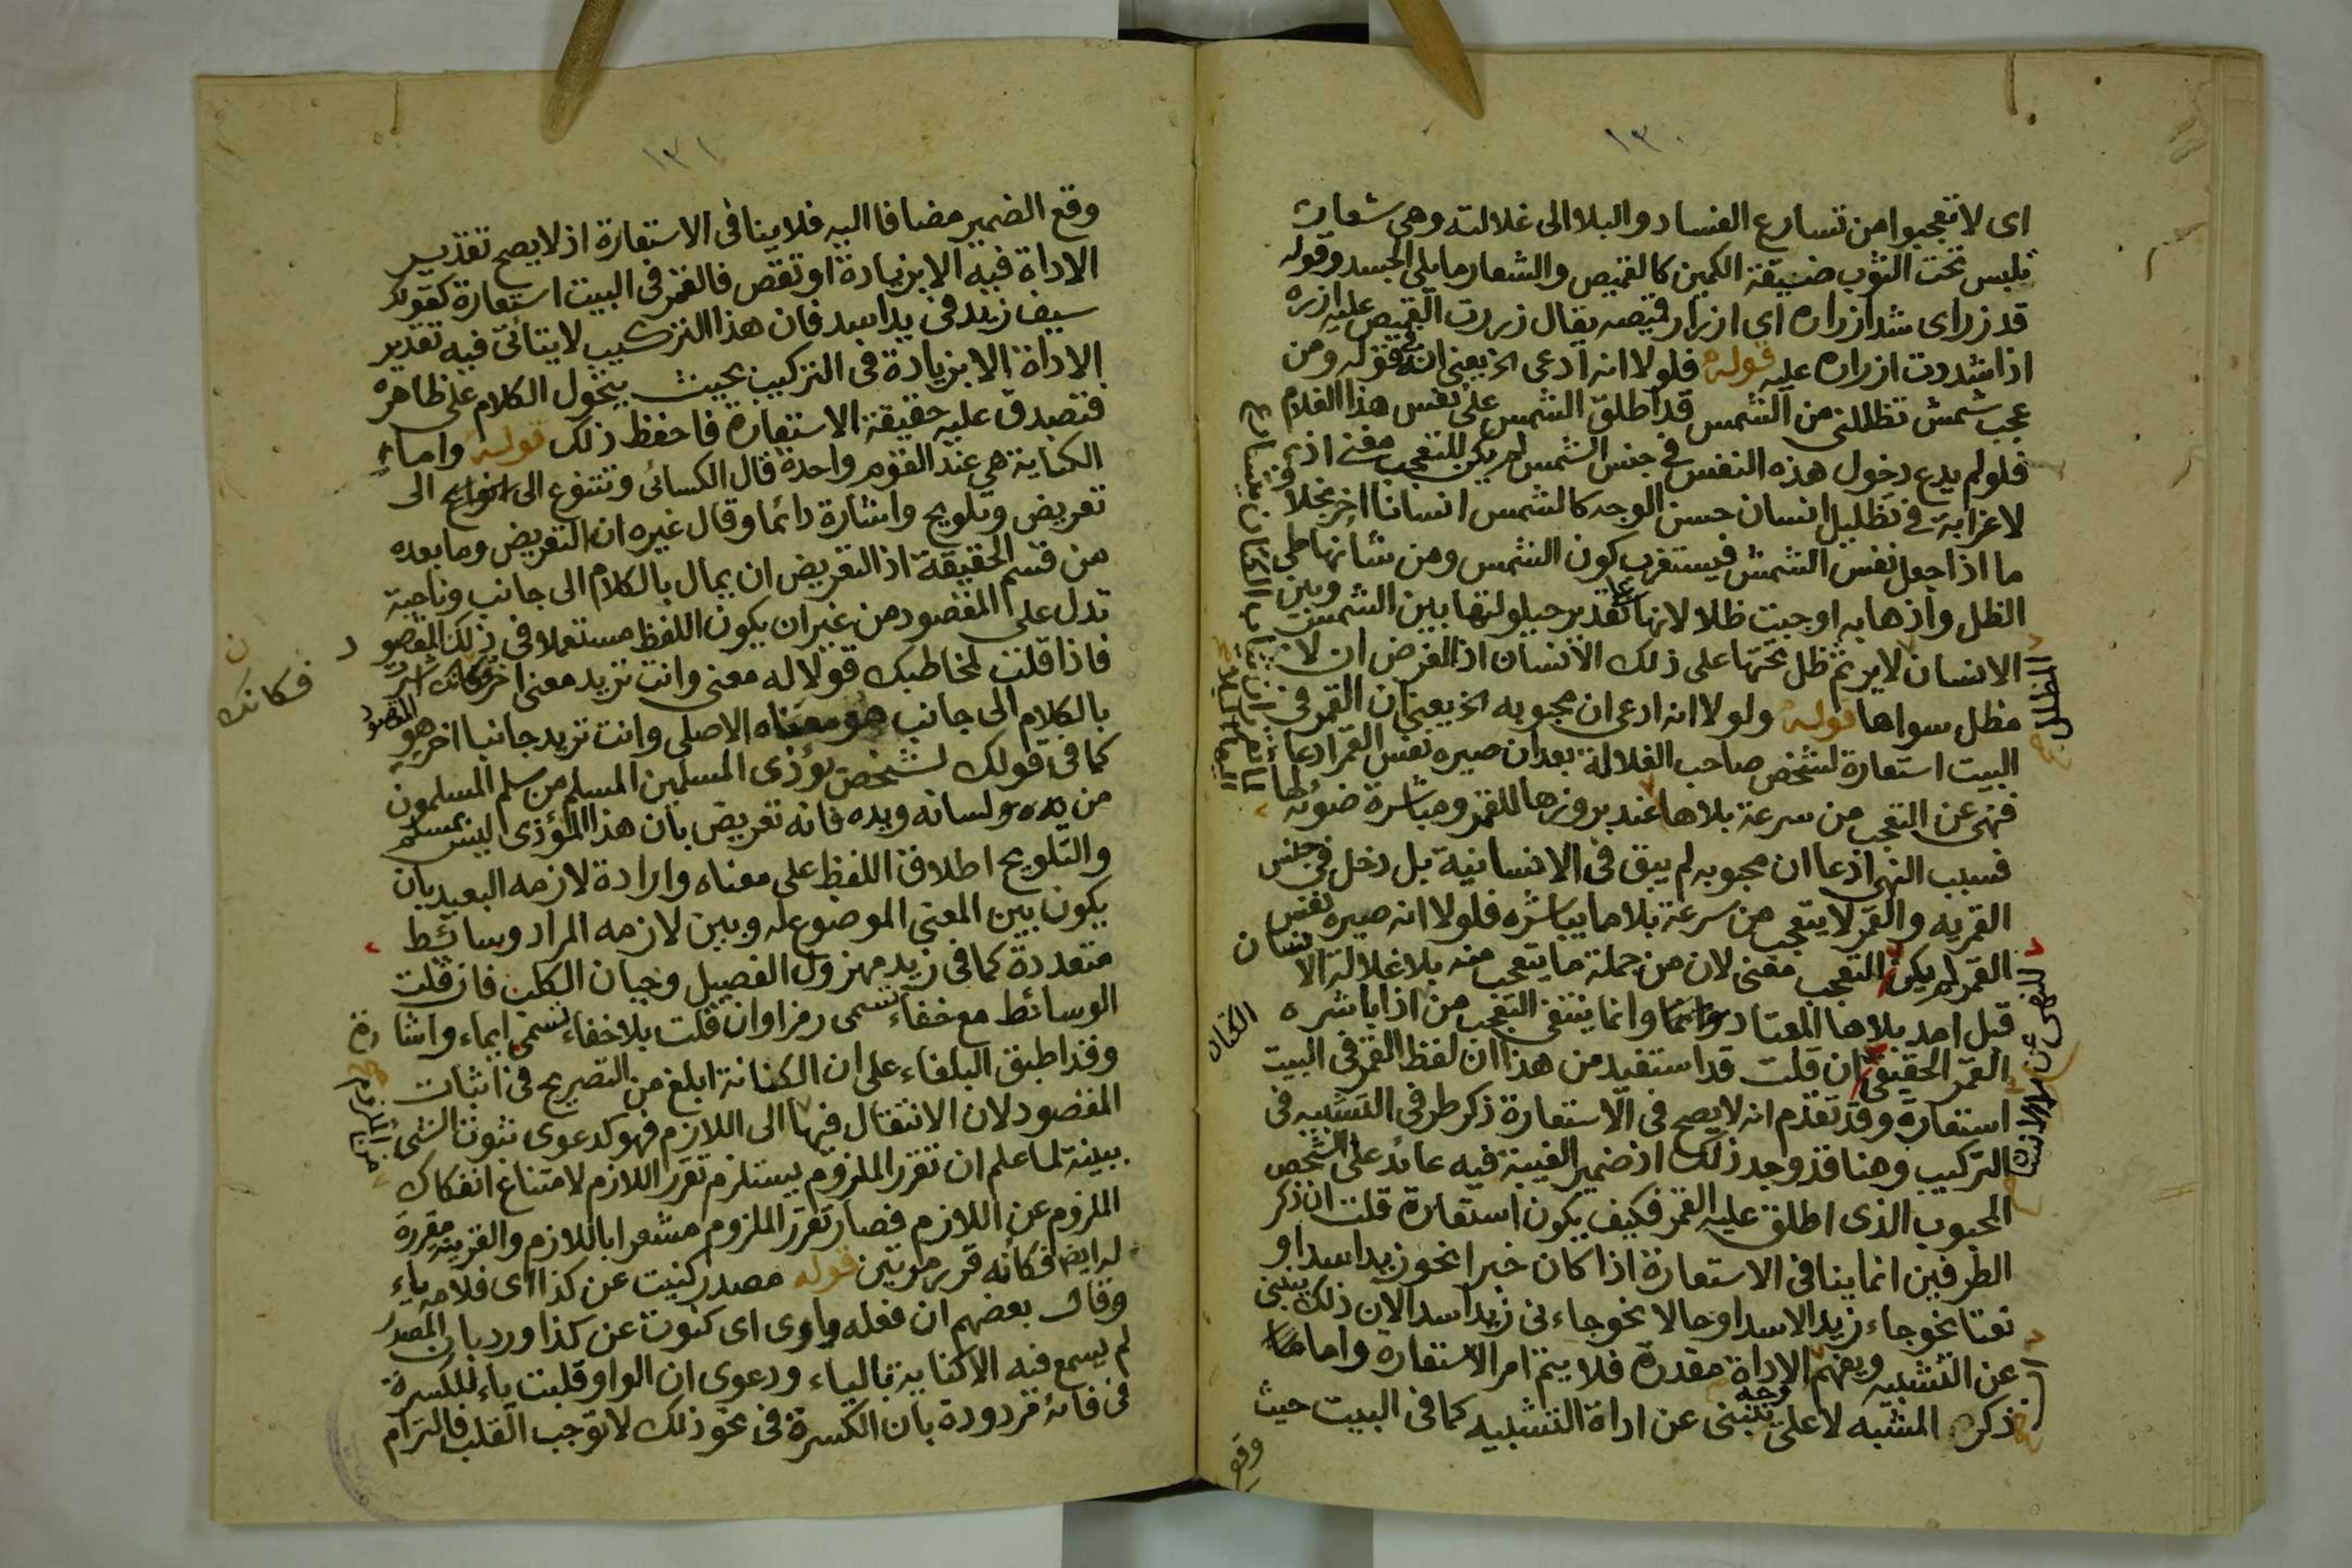 ١٣٠
اى لا تعجبوا من تسارع الفساد والبلا الى غلالته وهى شعار
تلبس تحت الثوب ضيقة الكمين كالقميص والشعار ما يلى الجسد وقوله
قد زر اى شد ازراره اى ازرار قميصه يقال زررت القميص عليه ازره
اذا شددت ازراره عليه قوله فلولا انه ادعى الخ يعنى انه فى قوله ومن
عجب شمس تظللنى من الشمس قد اطلق الشمس على نفس هذا الغلام
فلو لم يدع دخول هذه النفس فى جنس الشمس لم يكن للتعجب معنى اذ
لا غرابة فى تظليل انسان حسن الوجه كالشمس انسانا اخر بخلاف
ما اذا جعل نفس الشمس فيستغرب كون الشمس ومن شأنها طى
الظل واذهابه اوجبت ظلا لانها على تقدير حيلولتها بين الشمس وبين
الانسان لا يرتم ظل تحتها على ذلك الانسان اذ الفرض ان لا
مظل سواها قوله ولولا انه ادعى ان محبوبه الخ يعنى ان القمر فى
البيت استعارة لشخص صاحب الغلالة بعد ان صيره نفس القمر ادعا
فنهى عن التعجب من سرعة بلاها عند بروزها للقمر ومباشرة ضوئه لها
فسبب النهى اذ عا ان محبوبه لم يبق فى الانسانية بل دخل فى جنس
القمريه والقمر لا يتعجب من سرعة بلا ما يباشره فلولا انه صيره نفس
القمر لم يكن التعجب معنى لان من جملة ما يتعجب منه بلا غلالة الانسان
قبل امد بلاها المعتاد وانما وانما ينتفى التعجب من اذا باشره
القمر الحقيقى ان قلت قد استفيد من هذا ان لفظ القمر فى البيت
استعارة وقد تقدم انه لا يصح فى الاستعارة ذكر طرفى التشبيه فى
التركيب وهنا قد وجد ذلك اذ ضمير الغيبة فيه عائد على الشخص
المحبوب الذى اطلق عليه القمر فكيف يكون استعارة قلت ان ذكر
الطرفين انما ينافى الاستعارة اذا كان خبرا نحو زيد اسد او
نعتا نحو جاء زيد الاسد او حالا نحو جاءنى زيد اسدا لان ذلك ينبنى
عن التشبيه ويفهم الاداة مقدرة فلا يتم امر الاستعارة واما
ذكر المشبه لا على وجه ينبنى عن اداة التشبيه كما فى البيت حيث
وقع
المظلل
النهى عن
الكتان
١٣١
وقع الضمير مضافا اليه فلا ينافى الاستعارة اذ لا يصح تقدير
الاداة فيه الا بزيادة او نقص فالقمر فى البيت استعارة كقولك
سيف زيد فى يد اسد فان هذا التركيب لا يتأتى فيه تقدير
الاداة الا بزيادة فى التركيب بحيث يتحول الكلام على ظاهره
فتصدق عليه حقيقة الاستعارة فاحفظ ذلك قوله واما
الكناية هى عند القوم واحدة قال الكسائى وتتنوع الى انواع الى
تعريض وتلويح واشارة دائما وقال غيره ان التعريض وما بعده
من قسم الحقيقة اذ التعريض ان يمال بالكلام الى جانب وناحية
تدل على المقصود من غير ان يكون اللفظ مستعملا فى ذلك المقصود
فاذا قلت لمخاطبك قولا له معنى وانت تريد معنى اخر فكانك اشرت
بالكلام الى جانب هو معناه الاصلى وانت تريد جانبا اخر هو المقصود
كما فى قولك لشخص يؤذى المسلمين المسلم من سلم المسلمون
من يده ولسانه ويده فانه تعريض بأن هذا المؤذى ليس بمسلم
والتلويح اطلاق اللفظ على معناه وارادة لازمه البعيد بان
يكون بين المعنى الموضوع له وبين لازمه المراد وسائط
متعددة كما فى زيد مهزول الفصيل وجبان الكلب فان قلت
الوسائط مع خفاء تسمى رمزا وان قلت بلا خفاء تسمى ايماء واشارة
وقد اطبق البلغاء على ان الكناية ابلغ من التصريح فى اثبات
المقصود لان الانتقال فيها الى اللازم فهو كدعوى ثبوت الشئ
ببينة لما علم ان تقرر الملزوم يستلزم تقرر اللازم لامتناع انفكاك
الملزوم عن اللازم فصار تقرر الملزوم مشعرا باللازم والقرينة مقررة
له ايضا فكأنه قرر مرتين قوله مصدر كنيت عن كذا اى فلامه ياء
وقال بعضهم ان فعله واوى اى كنوت عن كذا ورد بان المصدر
لم يسمع فيه الا كناية بالياء ودعوى ان الواو قلبت ياء للكسرة
فى فائه مردودة بان الكسرة فى نحو ذلك لا توجب القلب فالتزام
فكانك
من الملزوم